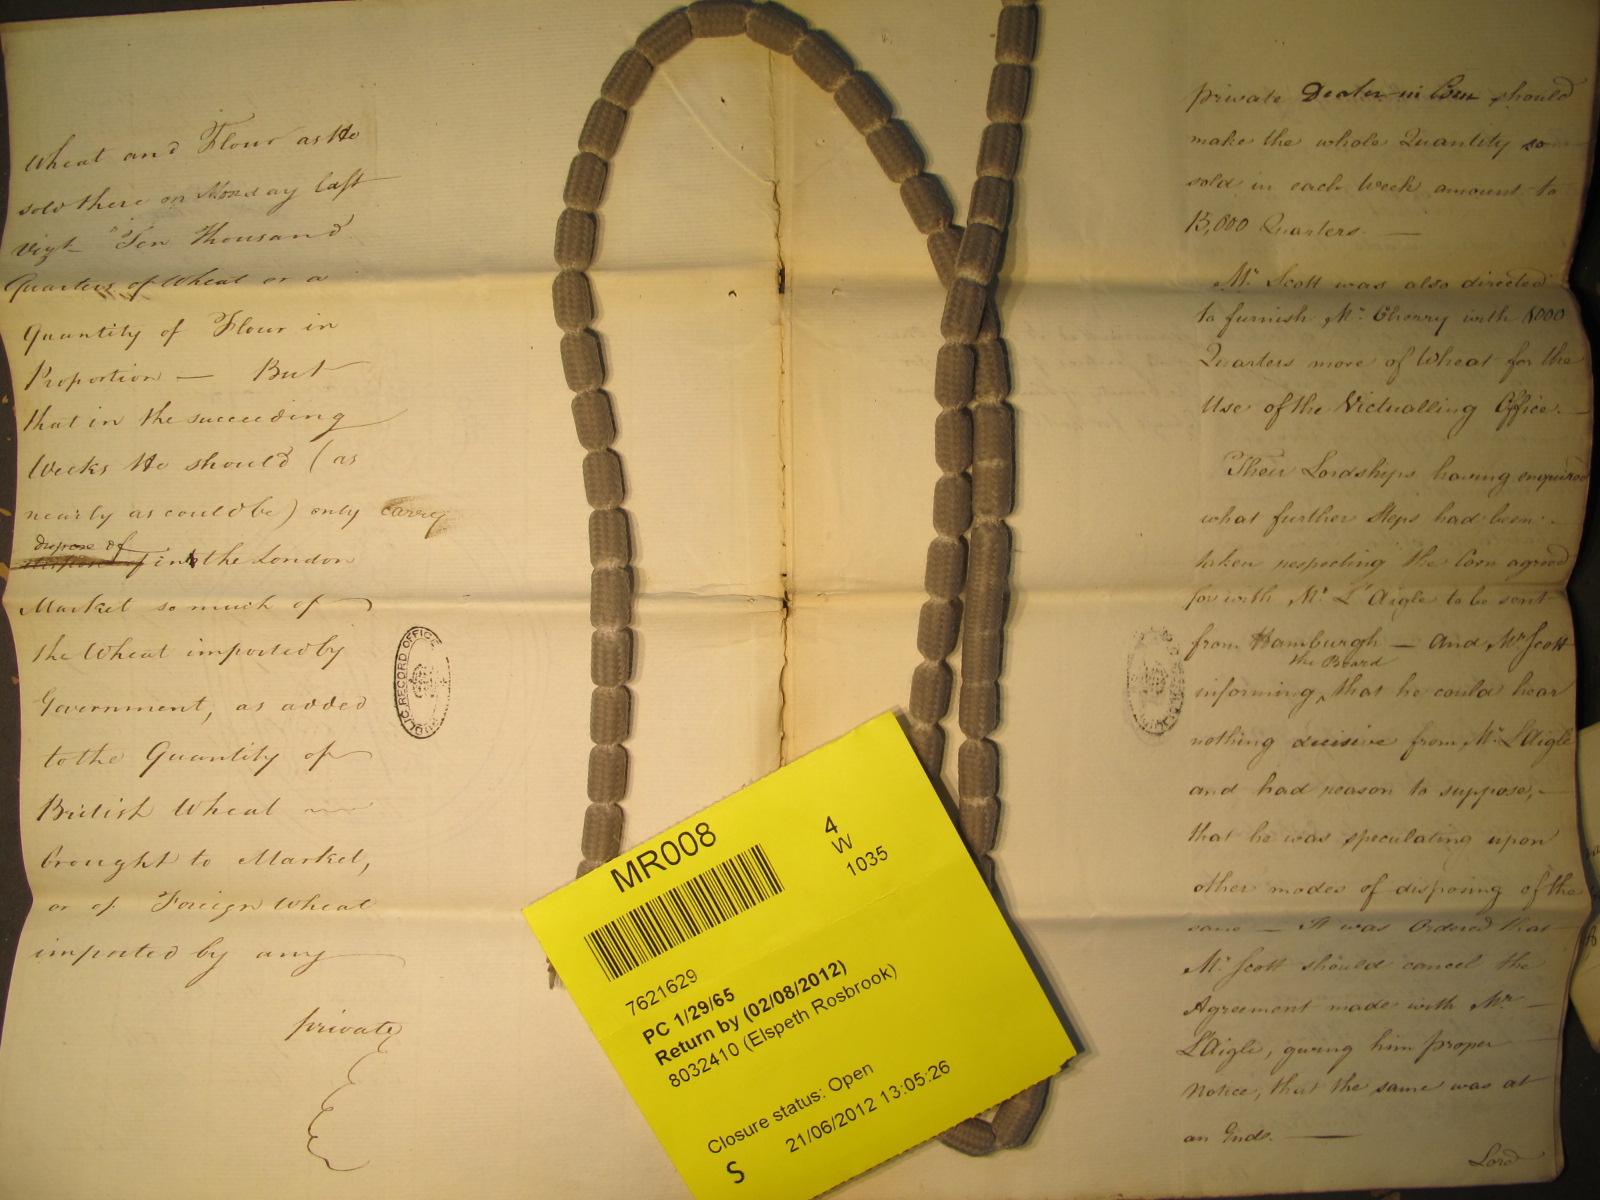 Wheat and Flour as He
sold there on Monday last
vizt Ten Thousand
Quarters of Wheat or a
Quantity of Flour in
Proportion — But
that in the succeeding
Weeks He should (as
nearly as could be) only carry
dispose of
in the London
Market so much of
the Wheat imported by
Government, as added
to the Quantity of
British Wheat
brought to Market,
or of Foreign Wheat
imported by any
private
PUBLIC RECORD OFFICE
private Dealer in Corn should
make the whole Quantity so
sold in each Week amount to
15,000 Quarters. —
Mr. Scott was also directed
to furnish Mr. Cherry with 1000
Quarters more of Wheat for the
Use of the Victualling Office. —
Their Lordships having enquired
what further Steps had been
taken respecting the Corn agreed
for with Mr. L'Aigle to be sent
from Hamburgh — And Mr Scott
the Board
informing ‸ that he could hear
nothing decisive from Mr. L'Aigle
and had reason to suppose, -
that he was speculating upon
other modes of disposing of the
same — It was Ordered that
Mr. Scott should cancel the
Agreement made with Mr. —
L'Aigle, giving him proper
Notice, that the same was at
an End. —
Lord
MR008
4
W
1035
7621629
PC 1/29/65
Return by (02/08/2012)
8032410 (Elspeth Rosbrook)
Closure status: Open
21/06/2012 13:05:26
S